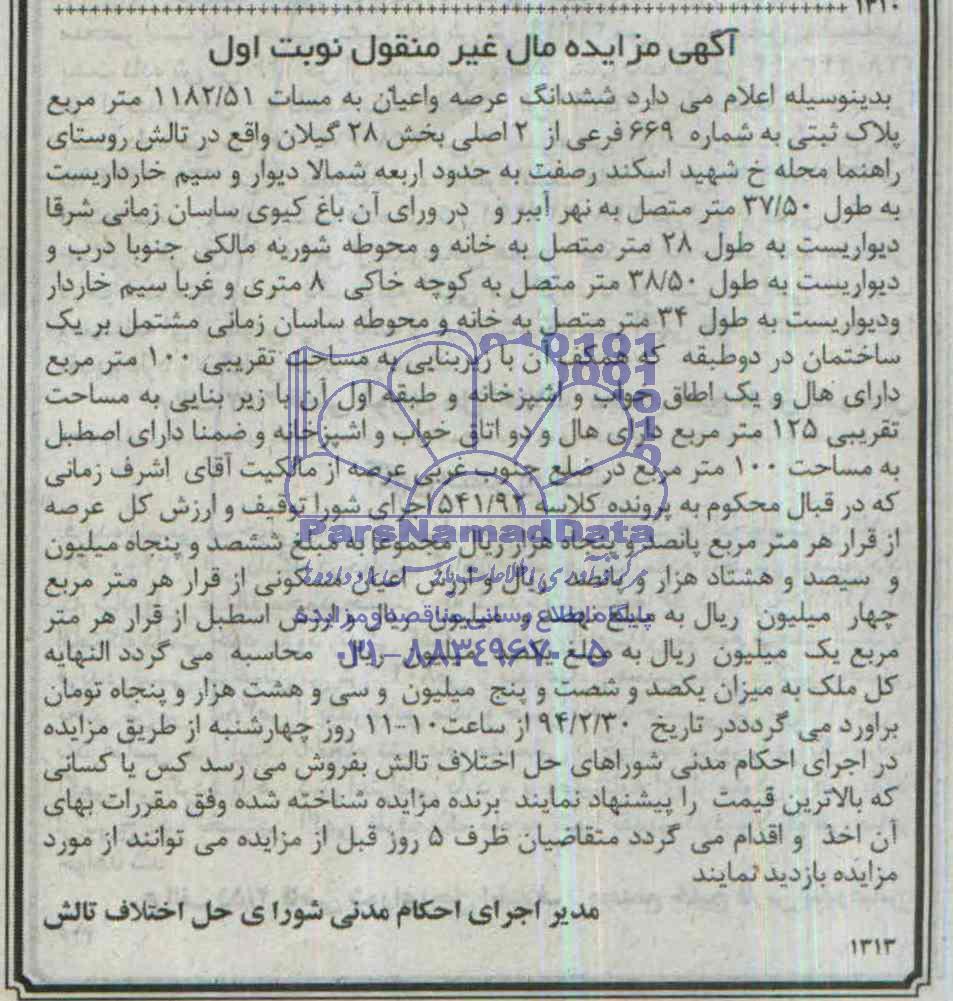 ۱۳۱۰
آگهی مزایده مال غیر منقول نوبت اول
بدینوسیله اعلام می دارد ششدانگ عرصه واعیان به مسات ۱۱۸۲/۵۱ متر مربع
پلاک ثبتی به شماره ۶۶۹ فرعی از ۲ اصلی بخش ۲۸ گیلان واقع در تالش روستای
راهنما محله خ شهید اسکند رصفت به حدود اربعه شمالا دیوار و سیم خارداریست
به طول ۳۷/۵۰ متر متصل به نهر آببر و در ورای آن باغ کیوی ساسان زمانی شرقا
دیواریست به طول ۲۸ متر متصل به خانه و محوطه شوریه مالکی جنوبا درب و
دیواریست به طول ۳۸/۵۰ متر متصل به کوچه خاکی ۸ متری و غربا سیم خاردار
ودیواریست به طول ۳۴ متر متصل به خانه و محوطه ساسان زمانی مشتمل بر یک
ساختمان در دوطبقه که همکف آن با زیربنایی به مساحت تقریبی ۱۰۰ متر مربع
دارای هال و یک اطاق خواب و آشپزخانه و طبقه اول آن با زیر بنایی به مساحت
تقریبی ۱۲۵ متر مربع دارای هال و دو اتاق خواب و اشپزخانه و ضمنا دارای اصطبل
به مساحت ۱۰۰ متر مربع در ضلع جنوب غربی عرصه از مالکیت آقای اشرف زمانی
که در قبال محکوم به پرونده کلاسه ۵۴۱/۹۲ اجرای شورا توقیف و ارزش کل عرصه
از قرار هر متر مربع پانصد و پنجاه هزار ریال مجموعا به مبلغ ششصد و پنجاه میلیون
و سیصد و هشتاد هزار و پانصد ریال و ارزش اعیان مسکونی از قرار هر متر مربع
چهار میلیون ریال به مبلغ نهصد میلیون ریال و ارزش اسطبل از قرار هر متر
مربع یک میلیون ریال به مبلغ یکصد میلیون ریال محاسبه می گردد النهایه
کل ملک به میزان یکصد و شصت و پنج میلیون و سی و هشت هزار و پنجاه تومان
براورد می گردددر تاریخ ۹۴/۲/۳۰ از ساعت۱۰-۱۱ روز چهارشنبه از طریق مزایده
در اجرای احکام مدنی شوراهای حل اختلاف تالش بفروش می رسد کس یا کسانی
که بالاترین قیمت را پیشنهاد نمایند برنده مزایده شناخته شده وفق مقررات بهای
آن اخذ و اقدام می گردد متقاضیان ظرف ۵ روز قبل از مزایده می توانند از مورد
مزایده بازدید نمایند
مدیر اجرای احکام مدنی شورا ی حل اختلاف تالش
۱۳۱۳
ParsNamadData
پایگاه اطلاع رسانی مناقصه و مزایده
۰۲۱-۸۸۳۴۹۶۷۰-۵